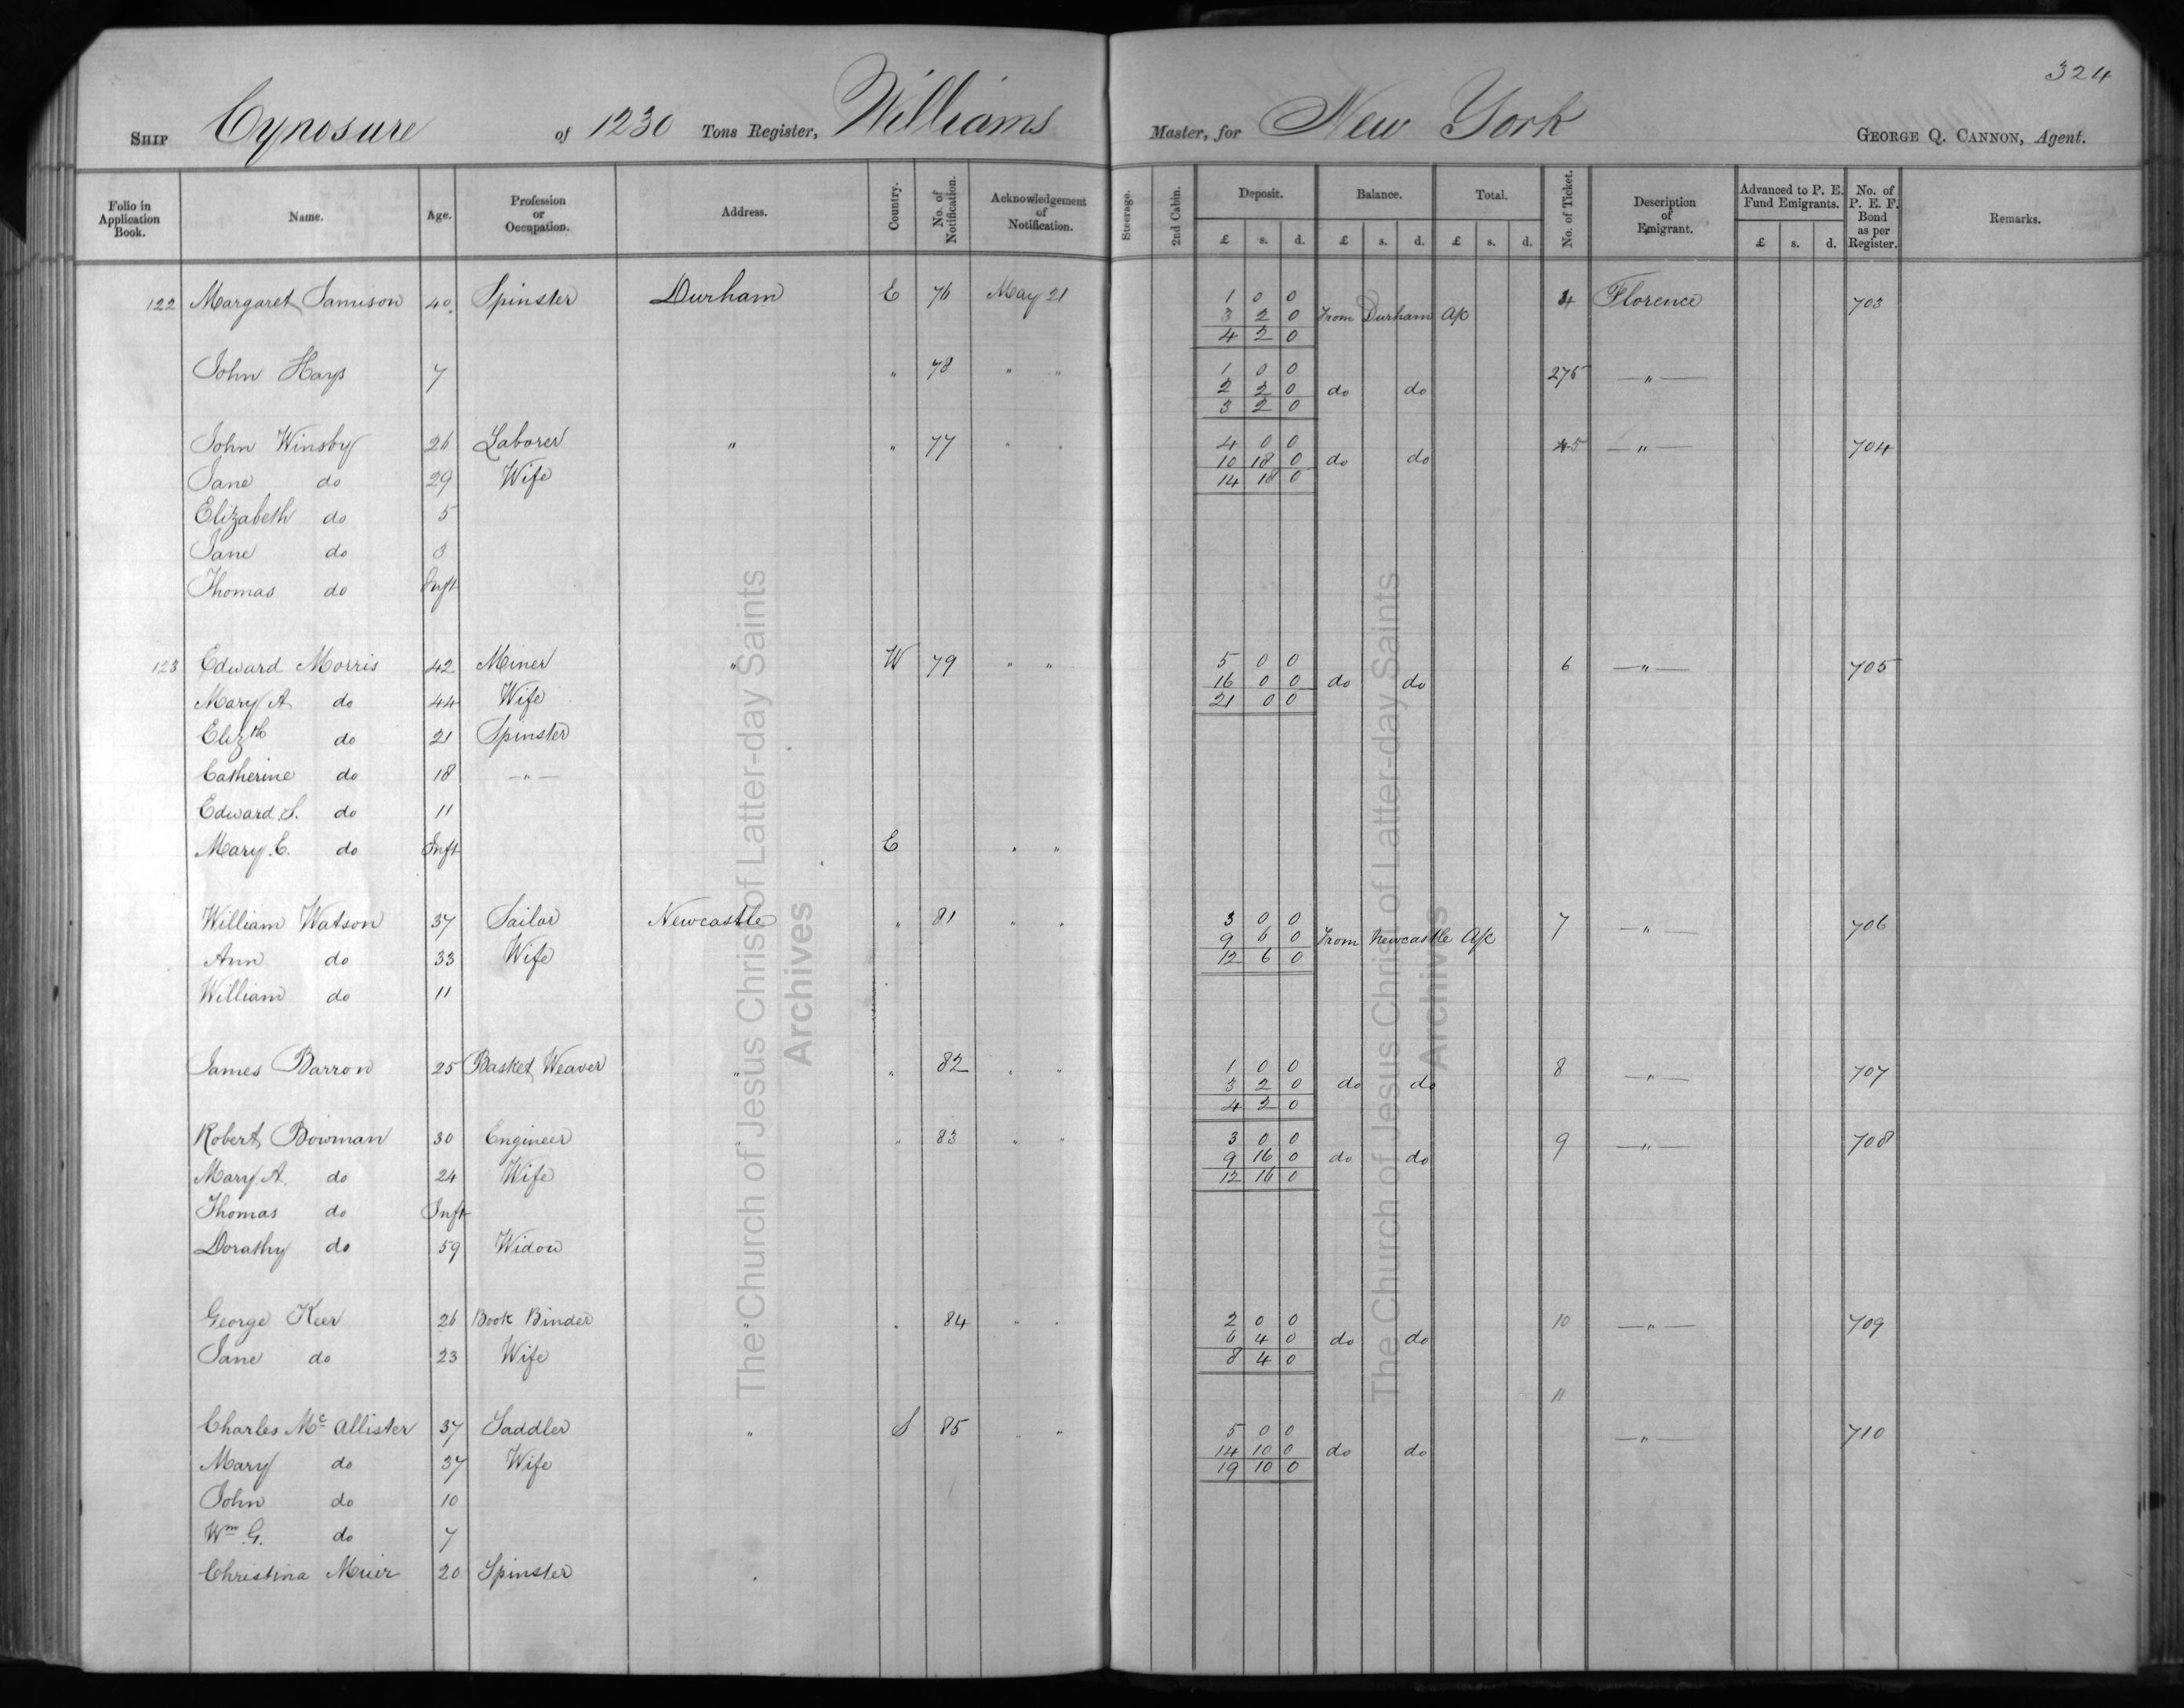 324
SHIP Cynosure of 1230 Tons Register, Williams Master, for New York GEORGE Q. CANNON, Agent.
Folio in Application Book. Name. Age. Profession or Occupation. Address. Country. No. of Notification. Acknowledgement of Notification. Steerage. 2nd Cabin. Deposit. £ s. d. Balance. £ s. d. Total. £ s. d. No. of Ticket. Description of Emigrant. Advanced to P. E. Fund Emigrants. £ s. d. No. of P. E. F. Bond as per Register. Remarks.
122 Margaret Jamison 40 Spinster Durham E 76 May 21 1 0 0 4 Florence 703
3 2 0 From Durham A/c
4 2 0
John Hays 7 " 78 " " 1 0 0 275 — " —
2 2 0 do do
3 2 0
John Winsby 26 Laborer " " 77 " " 4 0 0 5 — " — 704
10 18 0 do do
Jane do 29 Wife 14 18 0
Elizabeth do 5
Jane do 3
Thomas do Inft
123 Edward Morris 42 Miner " W 79 " " 5 0 0 6 — " — 705
16 0 0 do do
Mary A do 44 Wife 21 0 0
Elizth do 21 Spinster
Catherine do 18 — " —
Edward S. do 11
Mary E. do Inft E " "
William Watson 37 Sailor Newcastle " 81 " " 3 0 0 7 — " — 706
9 6 0 From Newcastle A/c
Ann do 33 Wife 12 6 0
William do 11
James Barron 25 Basket Weaver " " 82 " " 1 0 0 8 — " — 707
3 2 0 do do
4 2 0
Robert Bowman 30 Engineer " " 83 " " 3 0 0 9 — " — 708
9 16 0 do do
Mary A. do 24 Wife 12 16 0
Thomas do Inft
Dorathy do 59 Widow
George Keer 26 Book Binder " " 84 " " 2 0 0 10 — " — 709
6 4 0 do do
Jane do 23 Wife 8 4 0
11
Charles Mc Allister 37 Saddler " S 85 " " 5 0 0 — " — 710
14 10 0 do do
Mary do 37 Wife 19 10 0
John do 10
Wm G. do 7
Christina Muir 20 Spinster
The Church of Jesus Christ of Latter-day Saints
Archives
The Church of Jesus Christ of Latter-day Saints
Archives